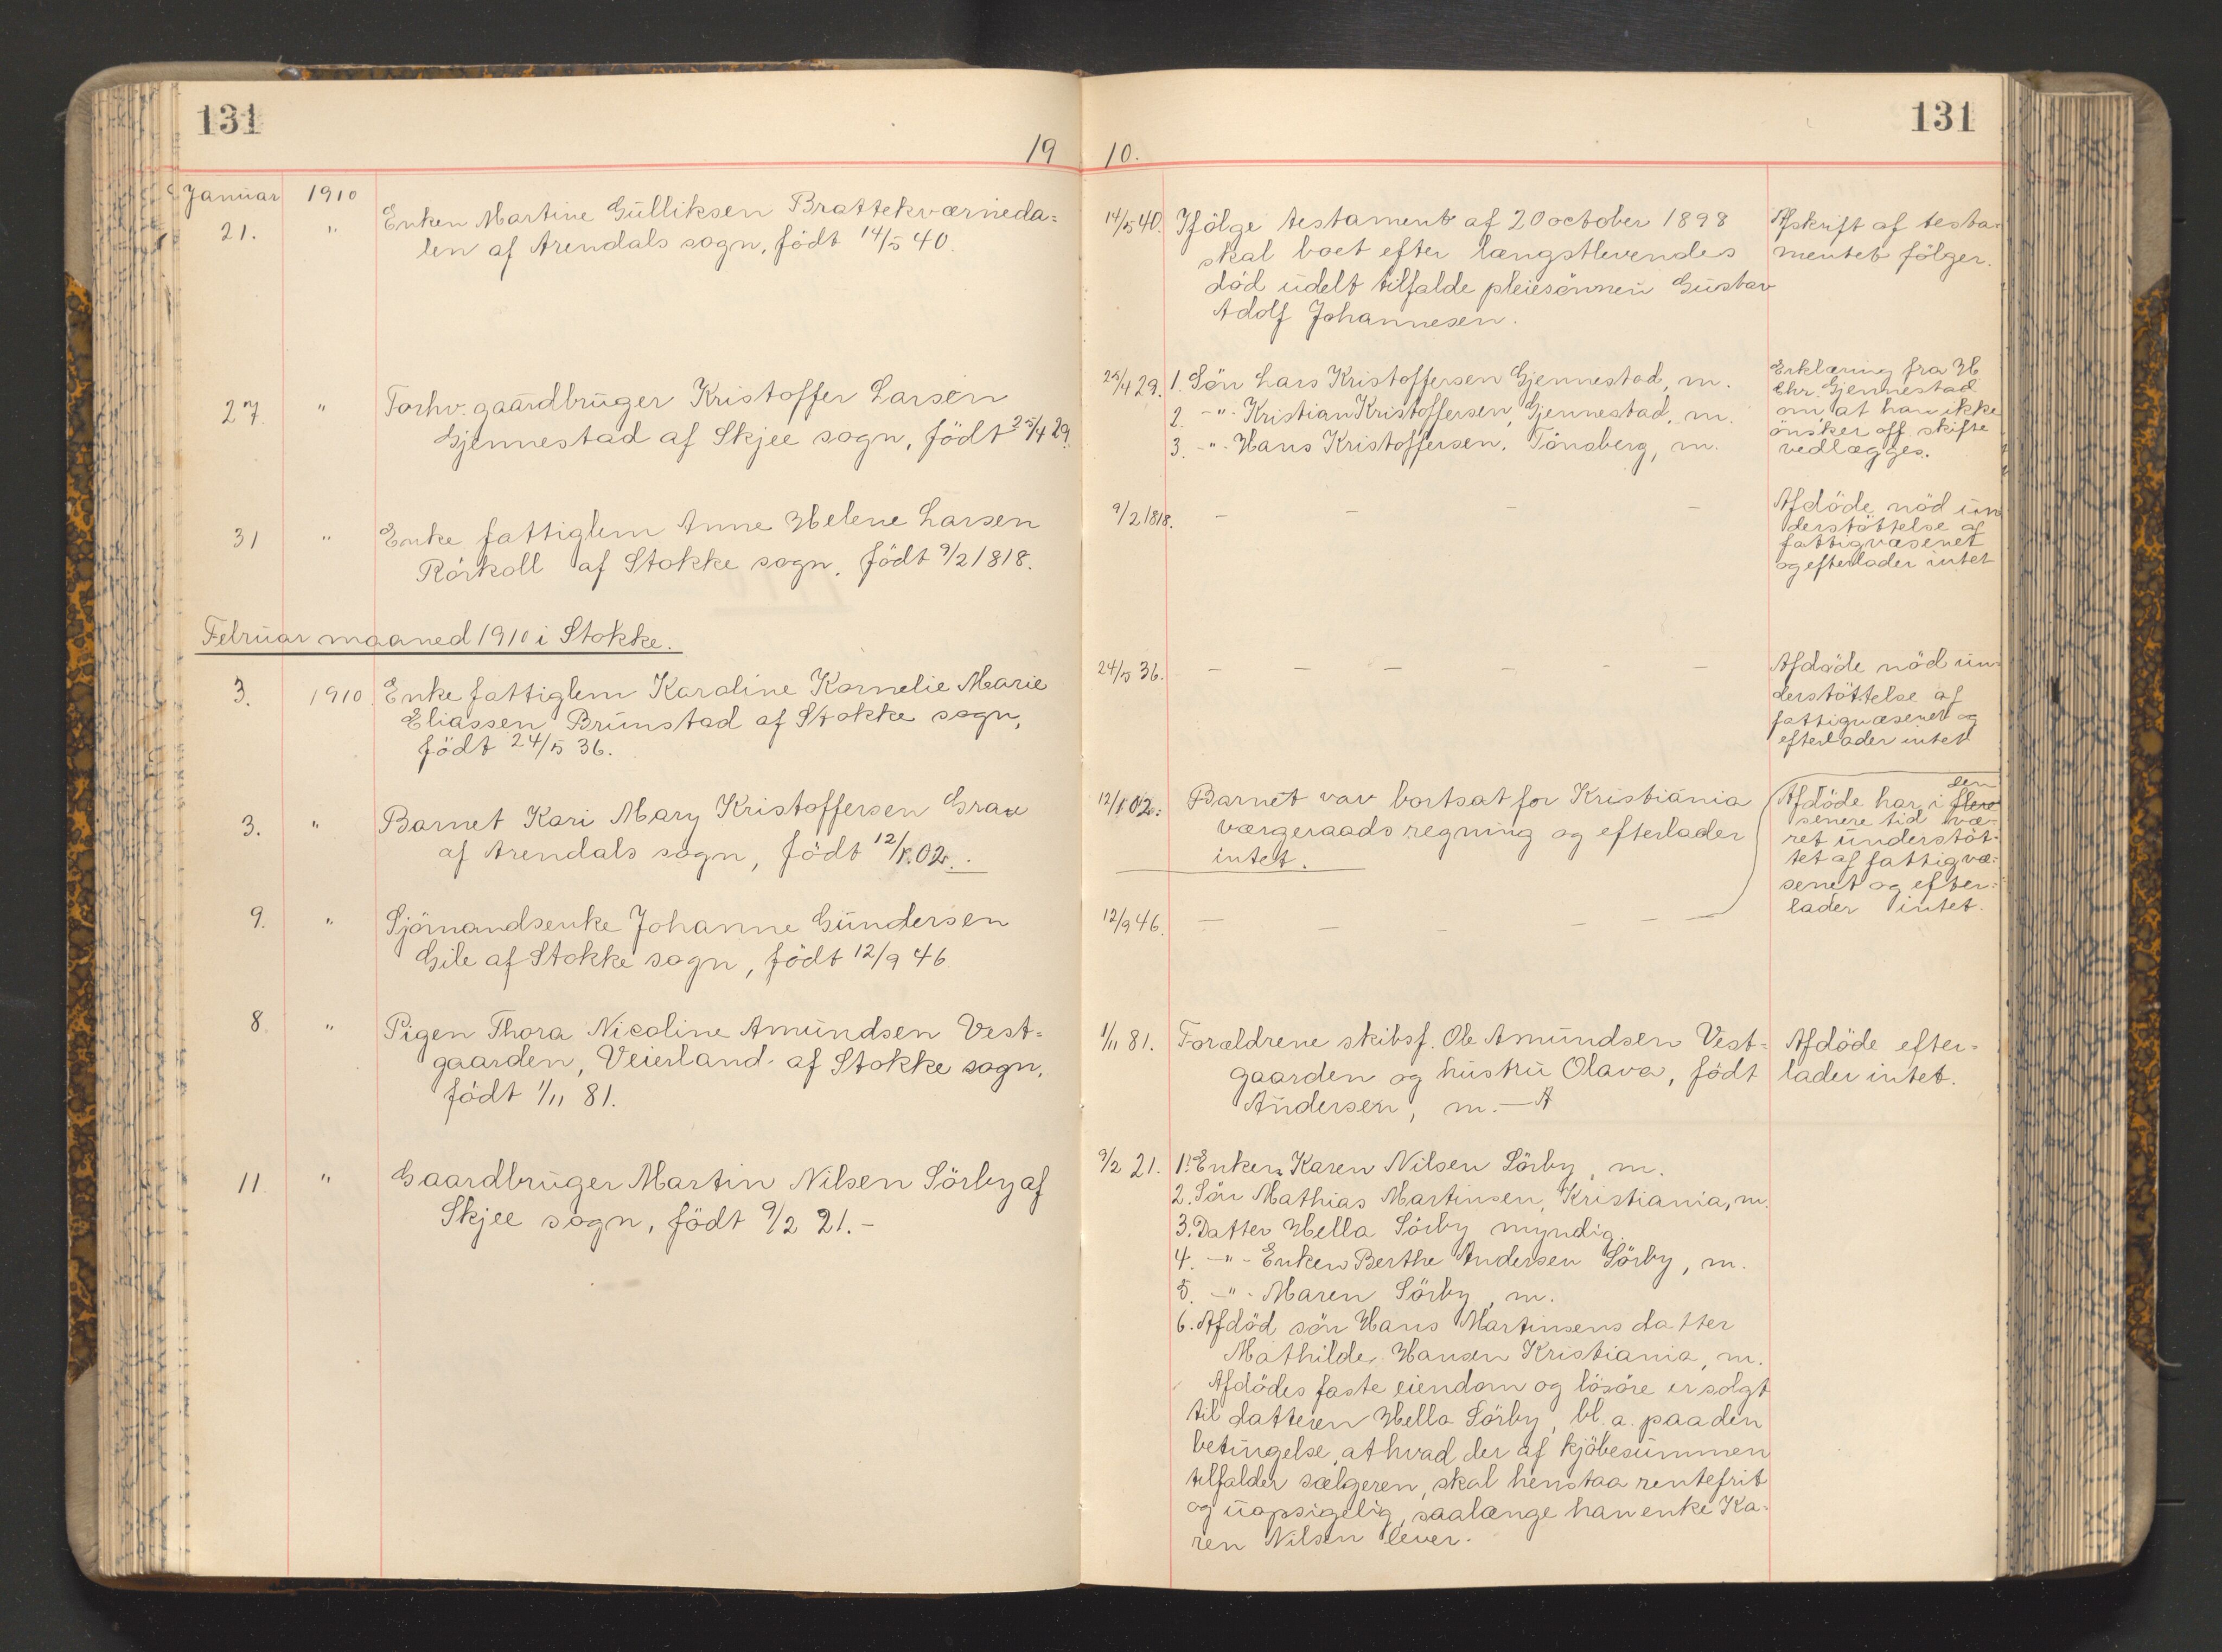 131
131
19 10.
Januar 1910
21. " Enken Martine Gulliksen Brattekværneda=
len af Arendals sogn, födt 14/5 40.
14/5 40. Ifölge testament af 20 october 1898
skal boet efter længstlevendes
död udelt tilfalde pleiesönnen Gustav
Adolf Johannesen.
Afskrift af testa-
mentet fölger.
27. " Forhv. gaardbruger Kristoffer Larsen
Gjennestad af Skjee sogn, födt 25/4 29.
25/4 29. 1. Sön Lars Kristoffersen Gjennestad, m.
2. -"- Kristian Kristoffersen, Gjennestad, m.
3. -"- Hans Kristoffersen, Tönsberg, m.
Erklæring fra H
Chr. Gjennestad
om at han ikke
önsker off. skifte
vedlægges.
31 " Enke fattiglem Anne Helene Larsen
Rörkoll af Stokke sogn, födt 9/2 1818.
9/2 1818. - - - -
Afdöde nöd un
derstöttelse af
fattigvæsenet
og efterlader intet
Februar maaned 1910 i Stokke.
3. 1910. Enke fattiglem Karoline Kornelie Marie
Eliassen Brunstad af Stokke sogn,
födt 24/5 36.
24/5 36. - - - - - -
Afdöde nöd un-
derstöttelse af
fattigvæsenet og
efterlader intet
3. " Barnet Kari Mary Kristoffersen Grav
af Arendals sogn, födt 12/1.02.
12/1 02. Barnet var bortsat for Kristiania
værgeraads regning og efterlader
intet.
9. " Sjömandsenke Johanne Gundersen
Gile af Stokke sogn, födt 12/9 46
12/9 46. - - - - - -
den
Afdöde har i flere
senere tid væ-
ret understöt-
tet af fattigvæ-
senet og efter-
lader intet.
8. " Pigen Thora Nicoline Amundsen Vest=
gaarden, Veierland af Stokke sogn,
födt 1/11 81.
1/11 81. Forældrene skibsf. Ole Amundsen Vest-
gaarden og hustru Olava, födt
Andersen, m. - A
Afdöde efter-
lader intet.
11. " Gaardbruger Martin Nilsen Sörby af
Skjee sogn, födt 9/2 21.-
9/2 21. 1. Enken Karen Nilsen Sörby, m.
2. Sön Mathias Martinsen, Kristiania, m.
3. Datter Hella Sörby myndig.
4. -"- Enken Berthe Andersen Sörby, m.
5. -"- Maren Sörby, m.
6. Afdöd sön Hans Martinsens datter
Mathilde Hansen Kristiania, m.
Afdödes faste eiendom og lösöre er solgt
til datteren Hella Sörby, bl. a. paa den
betingelse, at hvad der af kjöbesummen
tilfalder sælgeren, skal henstaa rentefrit
og uopsigelig, saalænge han enke Ka-
ren Nilsen lever.